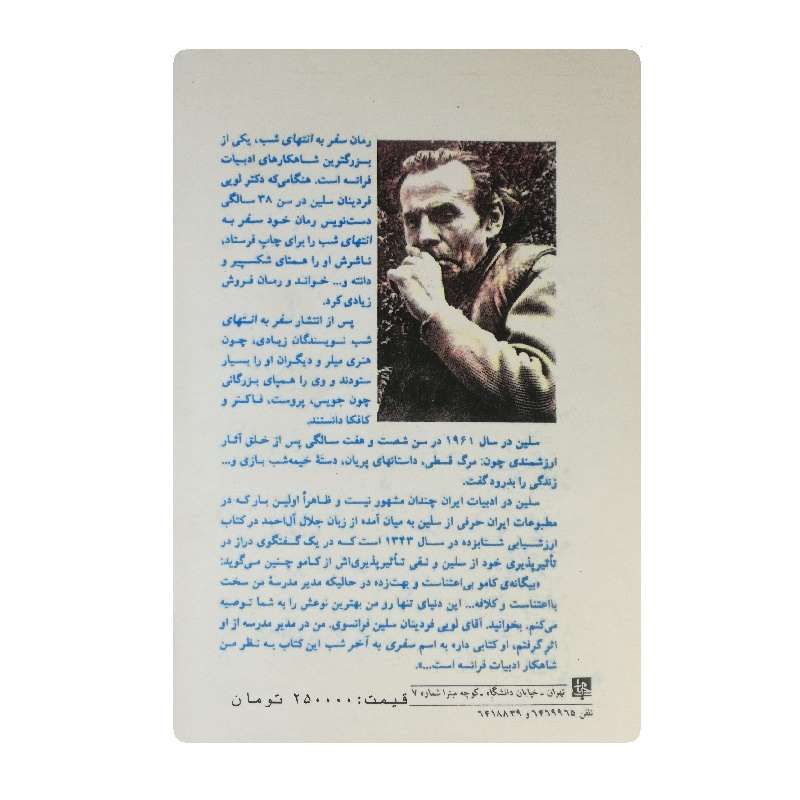 رمان سفر به انتهای شب، یکی از
بزرگترین شاهکارهای ادبیات
فرانسه است. هنگامی‌که دکتر لویی
فردینان سلین در سن ۳۸ سالگی
دست‌نویس رمان خود سفر به
انتهای شب را برای چاپ فرستاد،
ناشرش او را همتای شکسپیر و
دانته و... خواند و رمان فروش
زیادی کرد.
پس از انتشار سفر به انتهای
شب نویسندگان زیادی، چون
هنری میلر و دیگران او را بسیار
ستودند و وی را همپای بزرگانی
چون جویس، پروست، فاکنر و
کافکا دانستند.
سلین در سال ۱۹۶۱ در سن شصت و هفت سالگی پس از خلق آثار
ارزشمندی چون: مرگ قسطی، داستانهای پریان، دستهٔ خیمه‌شب بازی و...
زندگی را بدرود گفت.
سلین در ادبیات ایران چندان مشهور نیست و ظاهراً اولین بار که در
مطبوعات ایران حرفی از سلین به میان آمده از زبان جلال آل‌احمد در کتاب
ارزشیابی شتابزده در سال ۱۳۴۳ است که در یک گفتگوی دراز در
تأثیرپذیری خود از سلین و نفی تأثیرپذیری‌اش از کامو چنین می‌گوید:
«بیگانه‌ی کامو بی‌اعتناست و بهت‌زده در حالیکه مدیر مدرسهٔ من سخت
بااعتناست و کلافه... این دنیای تنها رو من بهترین نوعش را به شما توصیه
می‌کنم. بخوانید. آقای لویی فردینان سلین فرانسوی. من در مدیر مدرسه از او
اثر گرفتم، او کتابی داره به اسم سفری به آخر شب این کتاب به نظر من
شاهکار ادبیات فرانسه است...».
تهران - خیابان دانشگاه - کوچه میترا شماره ۷
قیمت: ۲۵۰۰۰۰ تومان
تلفن ۶۴۶۹۹۶۵ و ۶۴۱۸۸۳۹